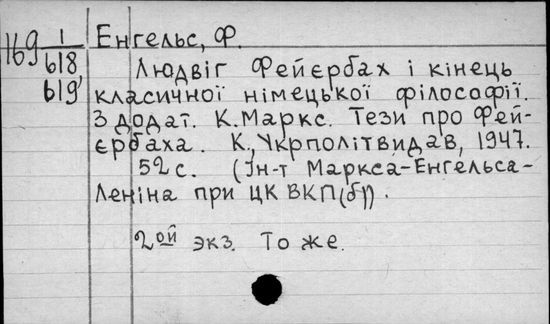 169 1/618, Енгельс, Ф.
619, Людвіг Фейєрбах і кінець
класичної німецької філософії.
З додат. К.Маркс. Тези про Фей-
єрбаха. К., Укрполітвидав, 1947.
52 с. (Ін-т Маркса-Енгельса-
Леніна при ЦК ВКП(б)).
2ой экз. То же.